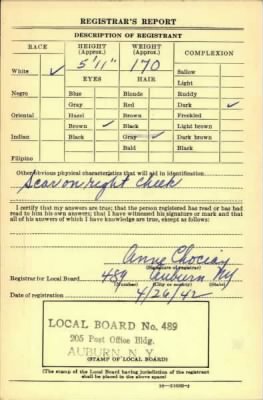 REGISTRAR'S REPORT
DESCRIPTION OF REGISTRANT
RACE HEIGHT (Approx.) WEIGHT (Approx.) COMPLEXION
5'11" 170
White ✓ Sallow
EYES HAIR Light
Negro Blue Blonde Ruddy
Gray Red Dark ✓
Oriental Hazel Brown Freckled
Brown ✓ Black Light brown
Indian Black Gray ✓ Dark brown
Bald Black
Filipino
Other obvious physical characteristics that will aid in identification
Scar on right cheek
I certify that my answers are true; that the person registered has read or has had
read to him his own answers; that I have witnessed his signature or mark and that
all of his answers of which I have knowledge are true, except as follows:
Anne Chociay
(Signature of registrar)
Registrar for Local Board 489 Auburn NY
(Number) (City or county) (State)
Date of registration 4/26/42
LOCAL BOARD No. 489
205 Post Office Bldg.
AUBURN, N. Y.
(STAMP OF LOCAL BOARD)
(The stamp of the Local Board having jurisdiction of the registrant
shall be placed in the above space)